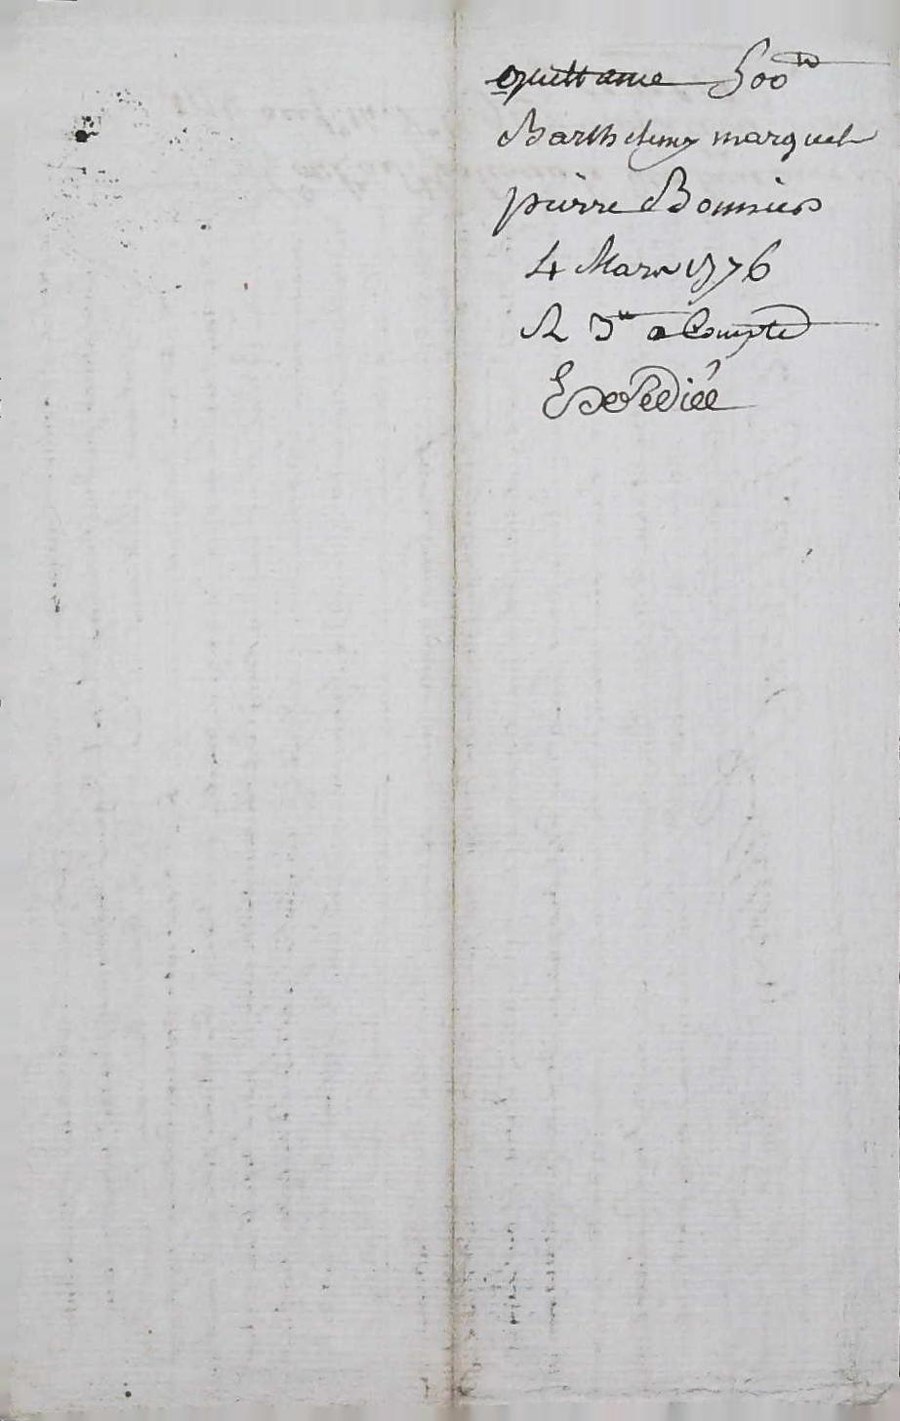 quittance 500lt
Barthelemy marquet
pierre Bonnier
4 Mars 1776
R 3lt a Compte
Expediée